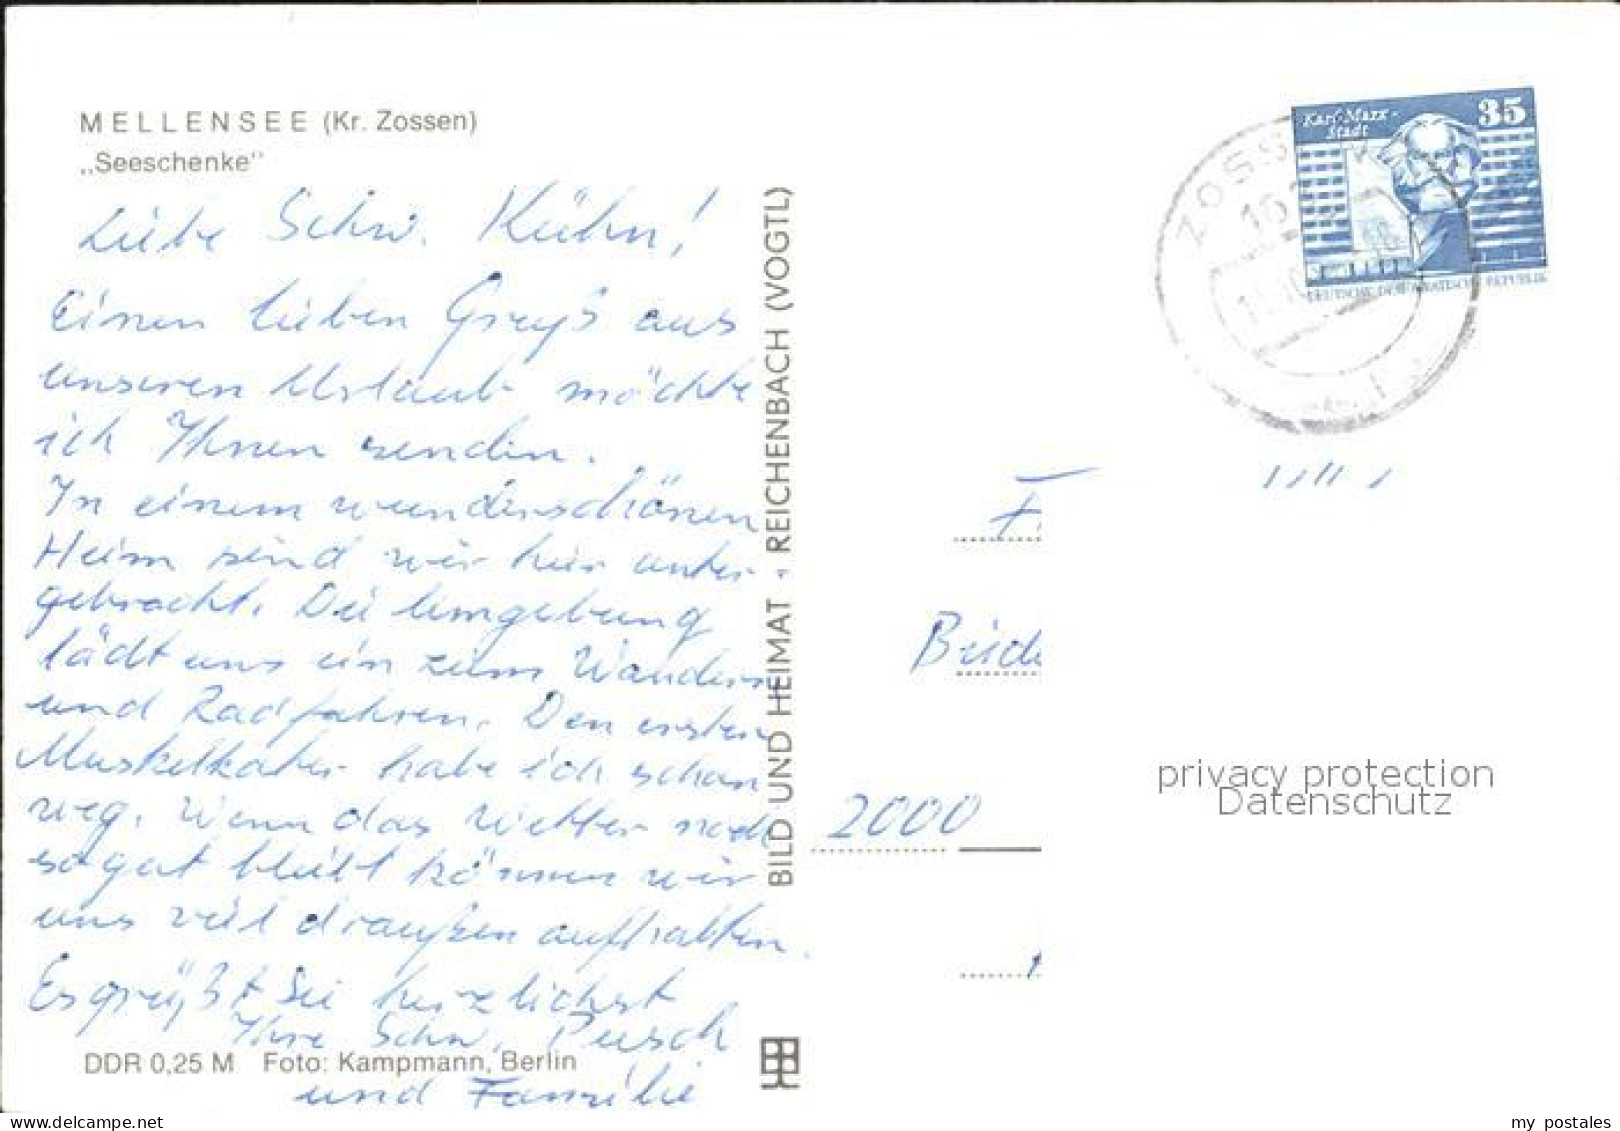 MELLENSEE (Kr. Zossen)
„Seeschenke"
Liebe Schw. Kühn!
Einen lieben Gruß aus
unseren Urlaub möchte
ich Ihnen senden.
In einem wunderschönen
Heim sind wir hier unter-
gebracht. Die Umgebung
lädt uns ein zum Wandern
und Radfahren. Den ersten
Muskelkater habe ich schon
weg. Wenn das Wetter noch
so gut bleibt können wir
uns viel draußen aufhalten.
Es grüßt Sie herzlichst
Ihre Schw. Pusch
und Familie
DDR 0,25 M Foto: Kampmann, Berlin
BILD UND HEIMAT · REICHENBACH (VOGTL)
Karl-Marx-
Stadt
35
DEUTSCHE DEMOKRATISCHE REPUBLIK
ZOSS
F
2000
privacy protection
Datenschutz
my postales